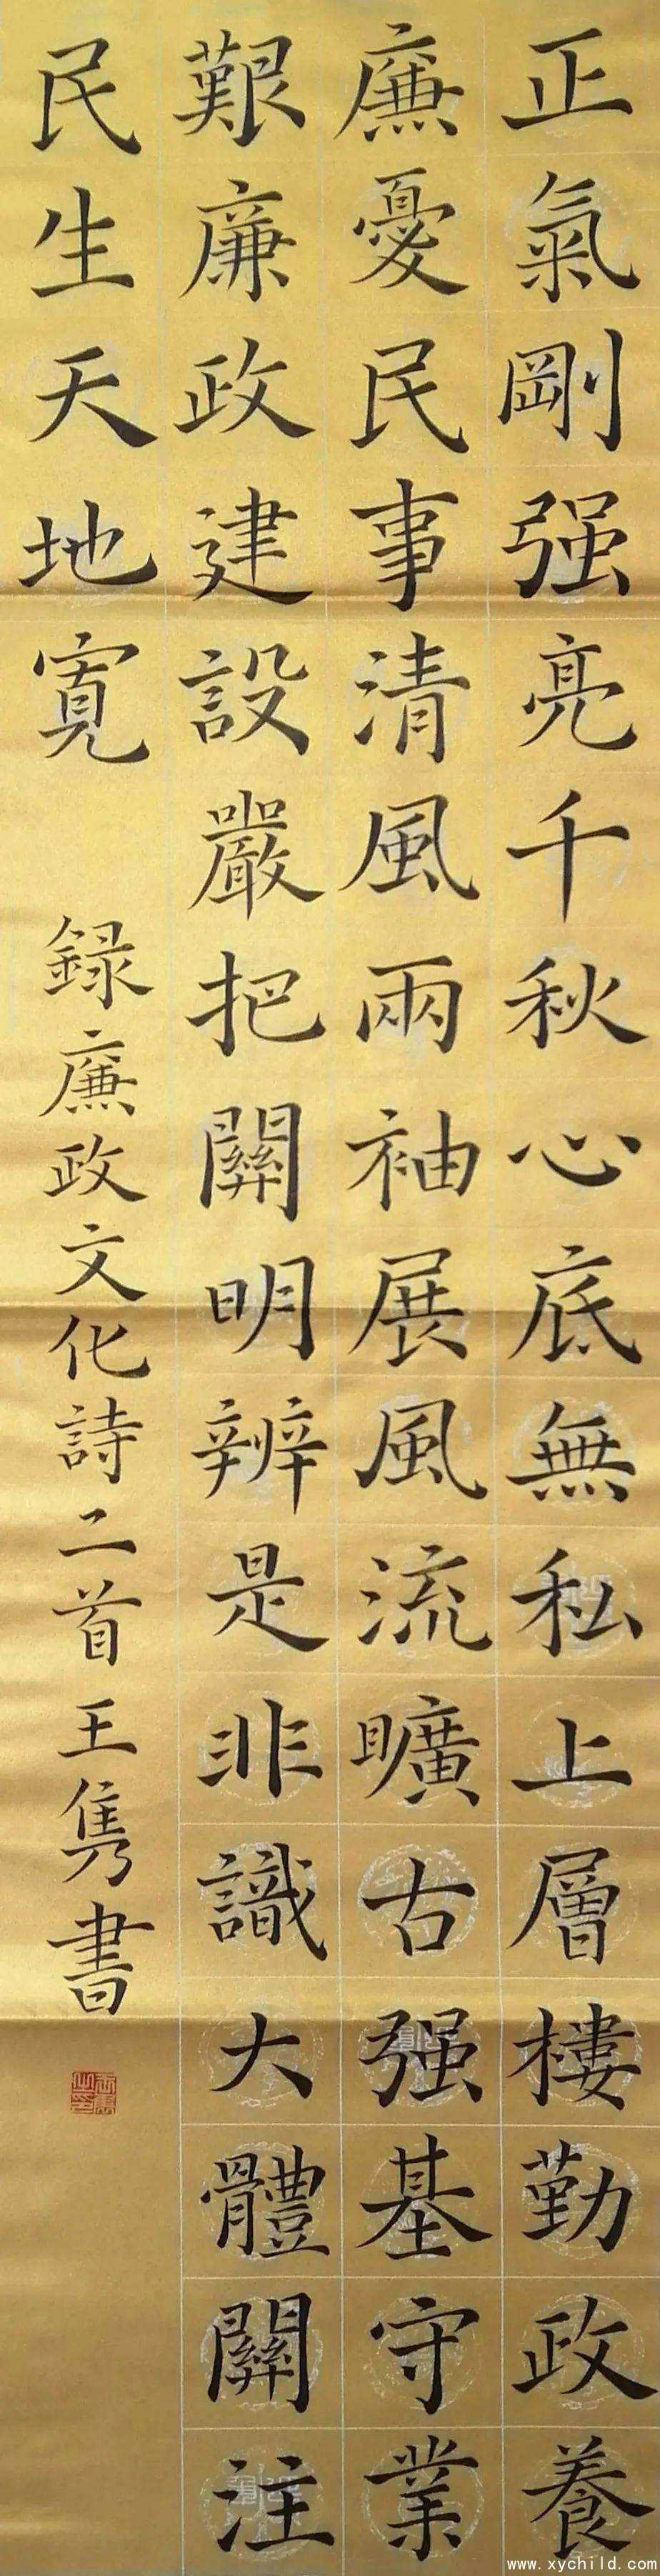 正氣剛强亮千秋心底無私上層樓勤政養
廉憂民事清風兩袖展風流曠古强基守業
艱廉政建設嚴把關明辨是非識大體關注
民生天地寬
録廉政文化詩二首王隽書
www.xychild.com